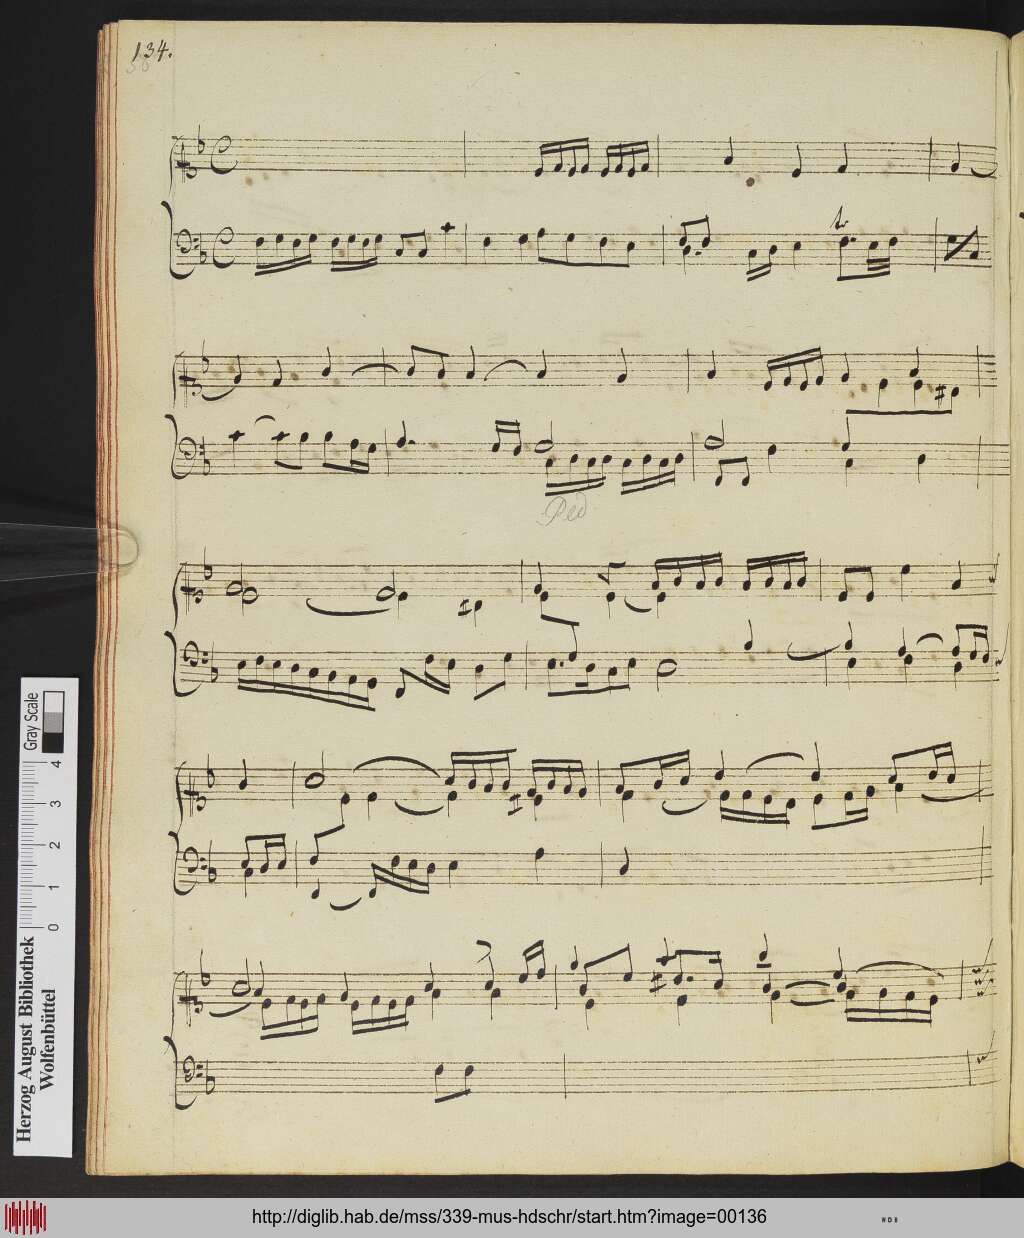 134.
tr
Ped
Gray Scale
0 1 2 3 4
Herzog August Bibliothek
Wolfenbüttel
http://diglib.hab.de/mss/339-mus-hdschr/start.htm?image=00136